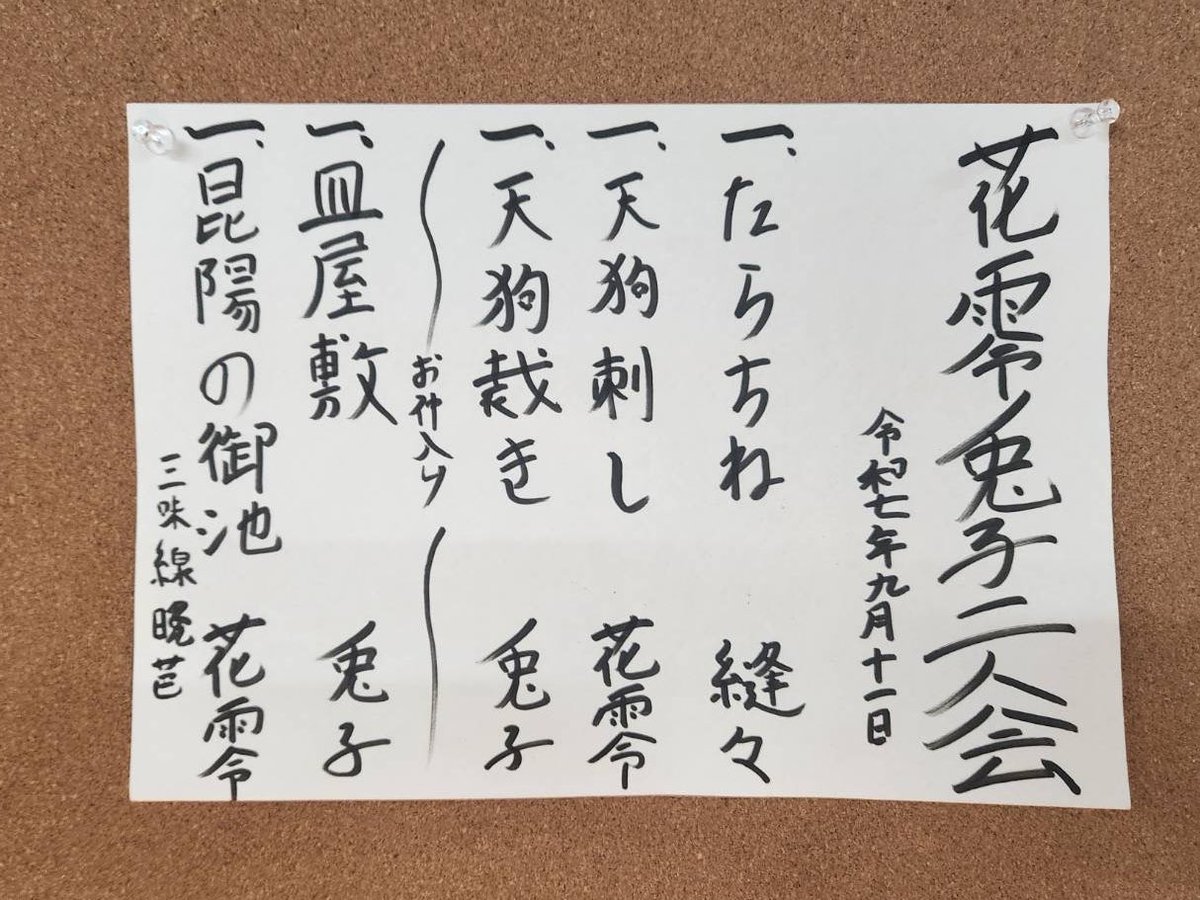 花零兎子二人会
令和七年九月十一日
一、たらちね 縫々
一、天狗刺し 花零
一、天狗裁き 兎子
お仲入り
一、皿屋敷 兎子
一、昆陽の御池 花零
三味線 暁芭